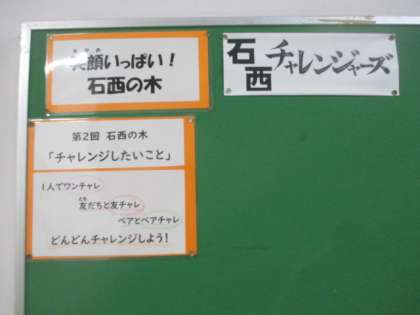 笑顔いっぱい！
石西の木
石西チャレンジャーズ
第2回 石西の木
「チャレンジしたいこと」
1人でワンチャレ
友だちと友チャレ
ペアとペアチャレ
どんどんチャレンジしよう！